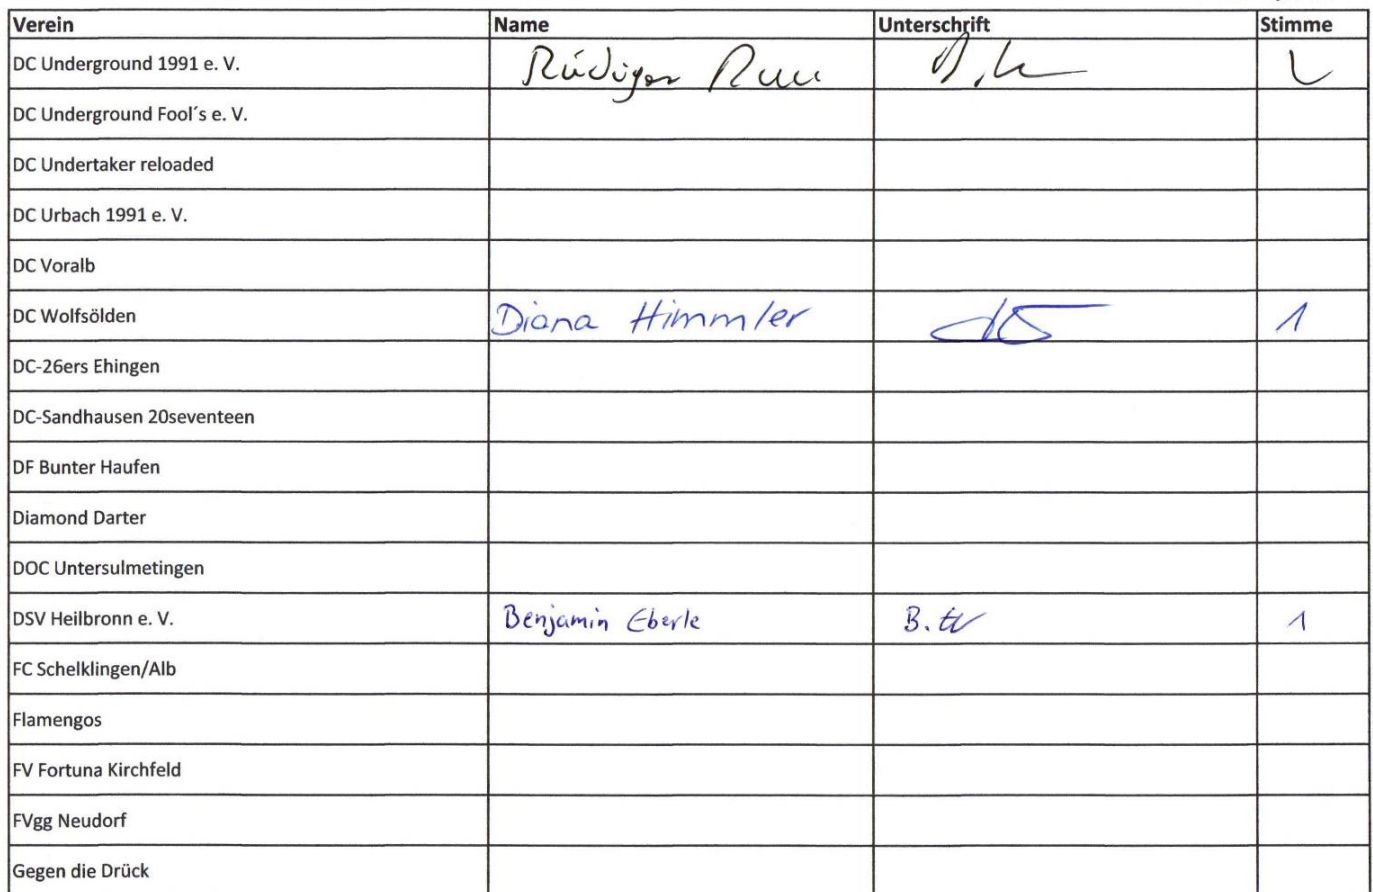 Verein Name Unterschrift Stimme
DC Underground 1991 e. V. Rüdiger
DC Underground Fool´s e. V.
DC Undertaker reloaded
DC Urbach 1991 e. V.
DC Voralb
DC Wolfsölden Diana Himmler 1
DC-26ers Ehingen
DC-Sandhausen 20seventeen
DF Bunter Haufen
Diamond Darter
DOC Untersulmetingen
DSV Heilbronn e. V. Benjamin Eberle 1
FC Schelklingen/Alb
Flamengos
FV Fortuna Kirchfeld
FVgg Neudorf
Gegen die Drück